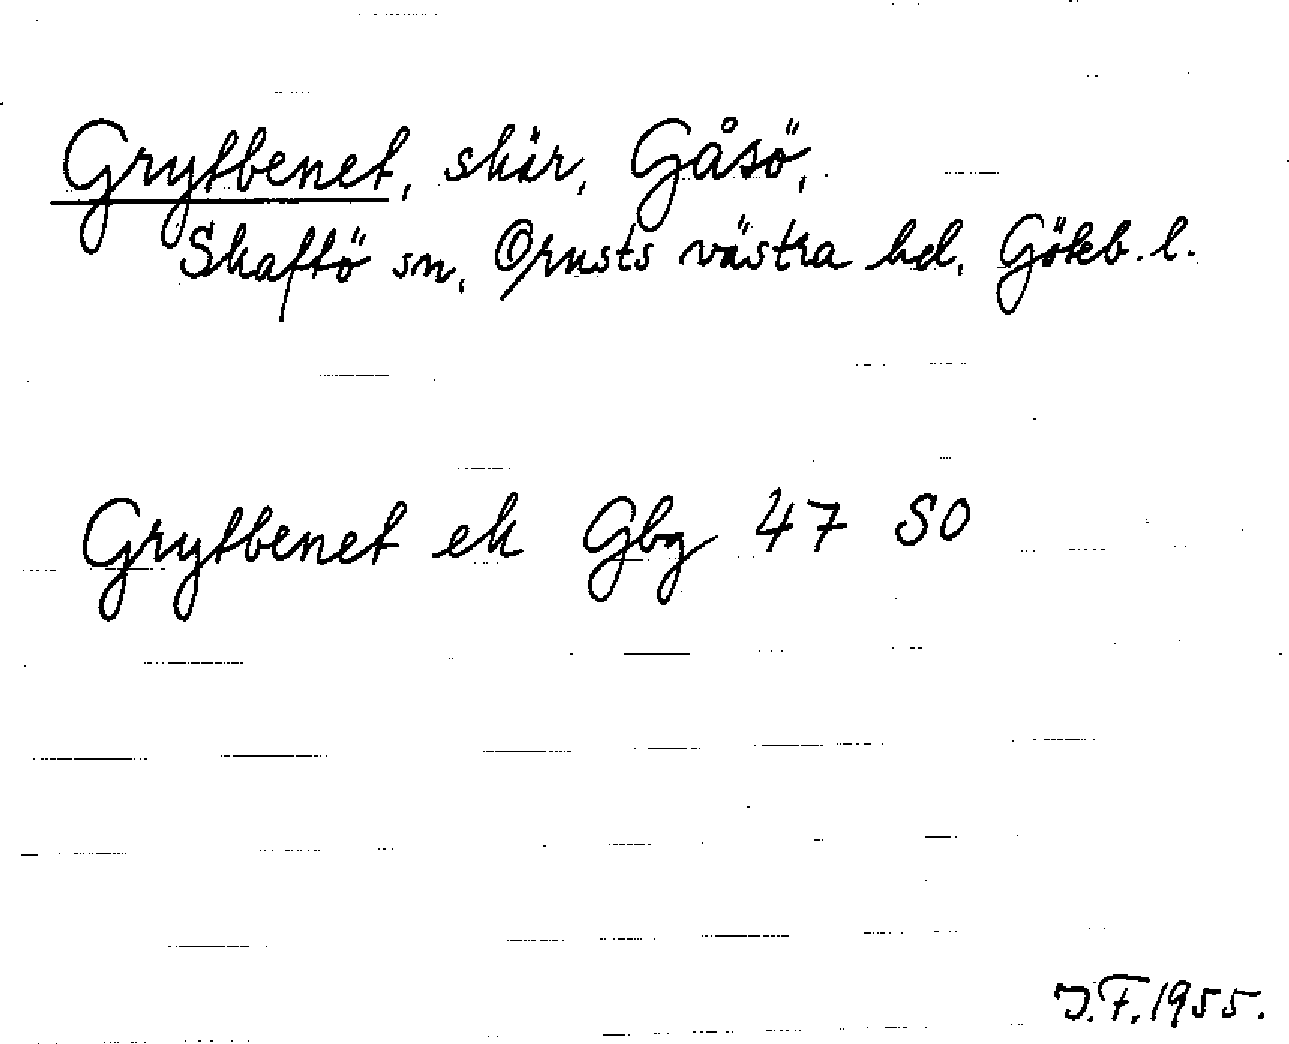 Grytbenet, skär, Gåsö,
Skaftö sn, Orusts västra hd, Göteb. l.
Grytbenet ek Gbg 47 SO
J.F. 1955.